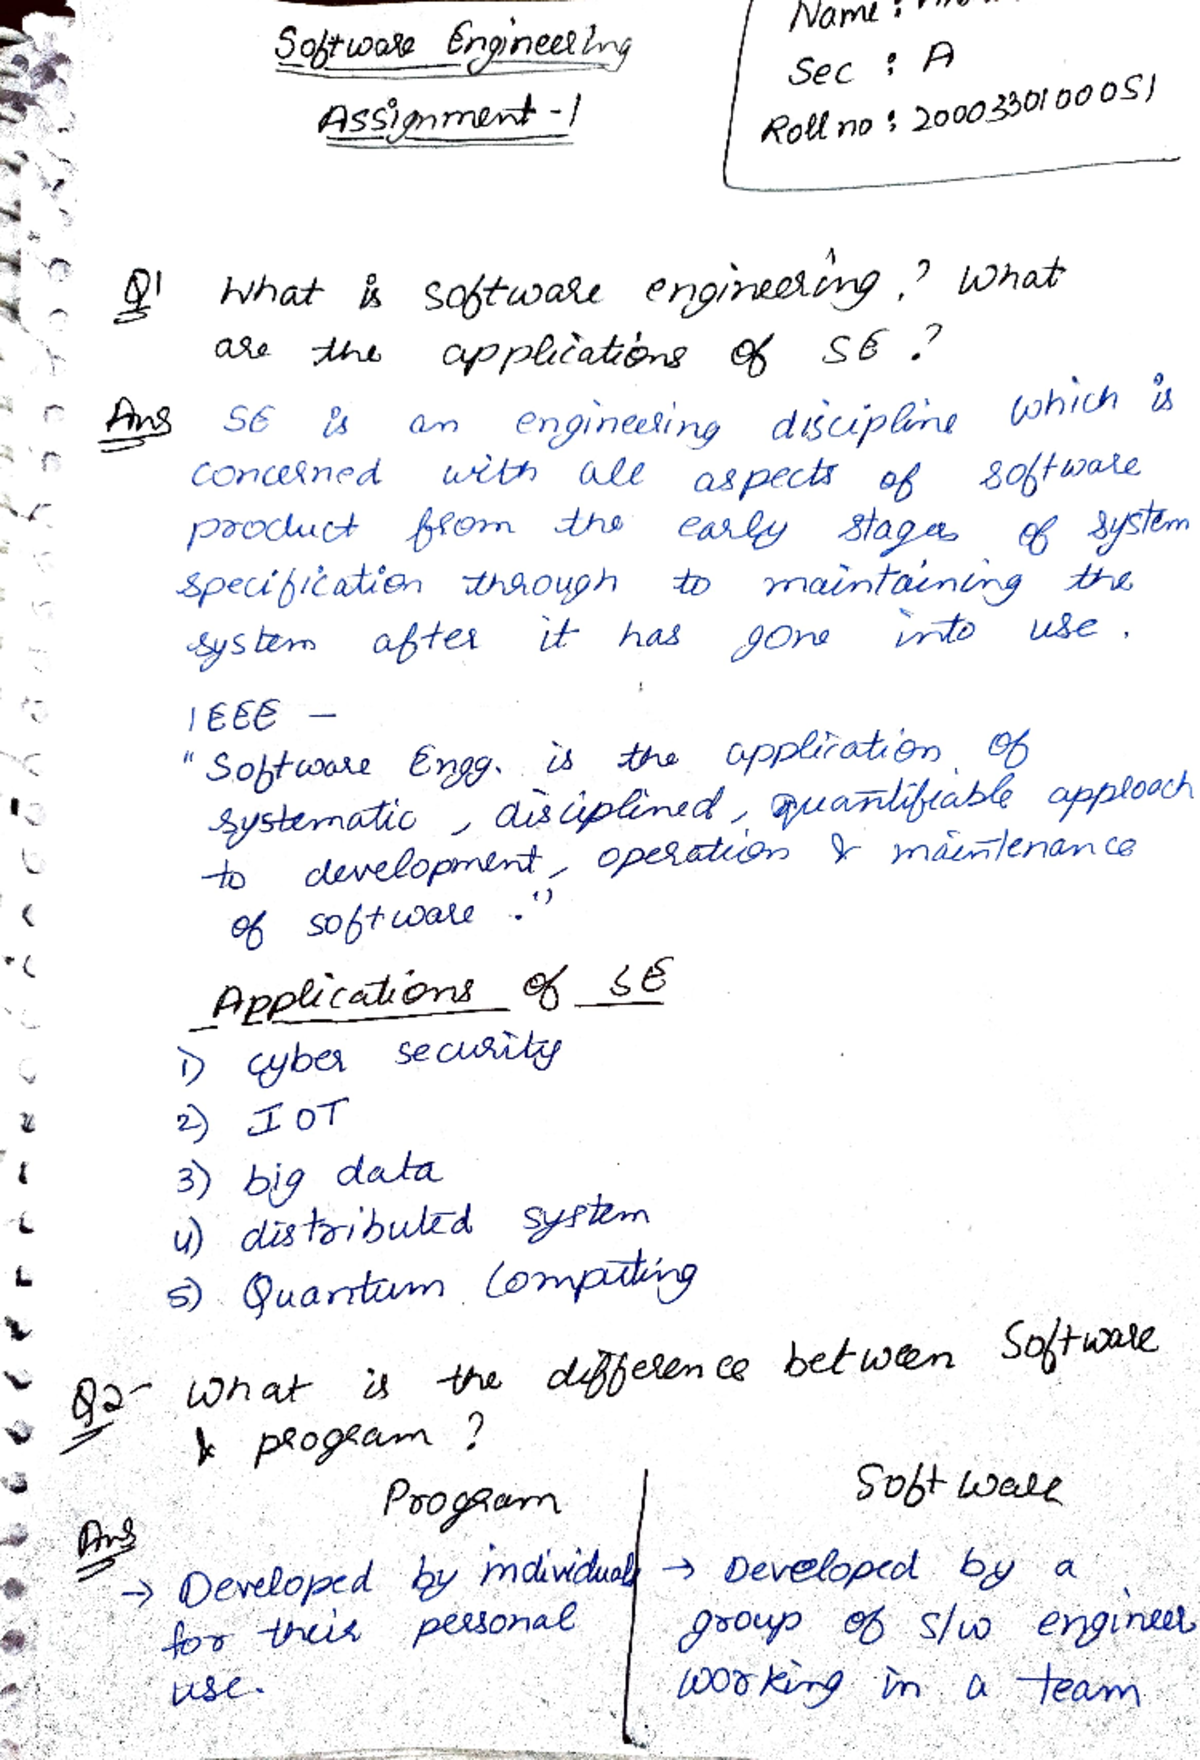 Software Engineering
Assignment-1
Name :
Sec : A
Roll no : 2000330100051
Q1 What is software engineering? What
are the applications of SE ?
Ans SE is an engineering discipline which is
concerned with all aspects of software
product from the early stages of system
specification through to maintaining the
system after it has gone into use.
IEEE —
"Software Engg. is the application of
systematic, disciplined, quantifiable approach
to development, operation & maintenance
of software."
Applications of SE
1) cyber security
2) IOT
3) big data
4) distributed system
5) Quantum Computing
Q2- What is the difference between Software
& program ?
Program
Software
Ans
→ Developed by individuals
for their personal
use.
→ Developed by a
group of S/W engineer
working in a team